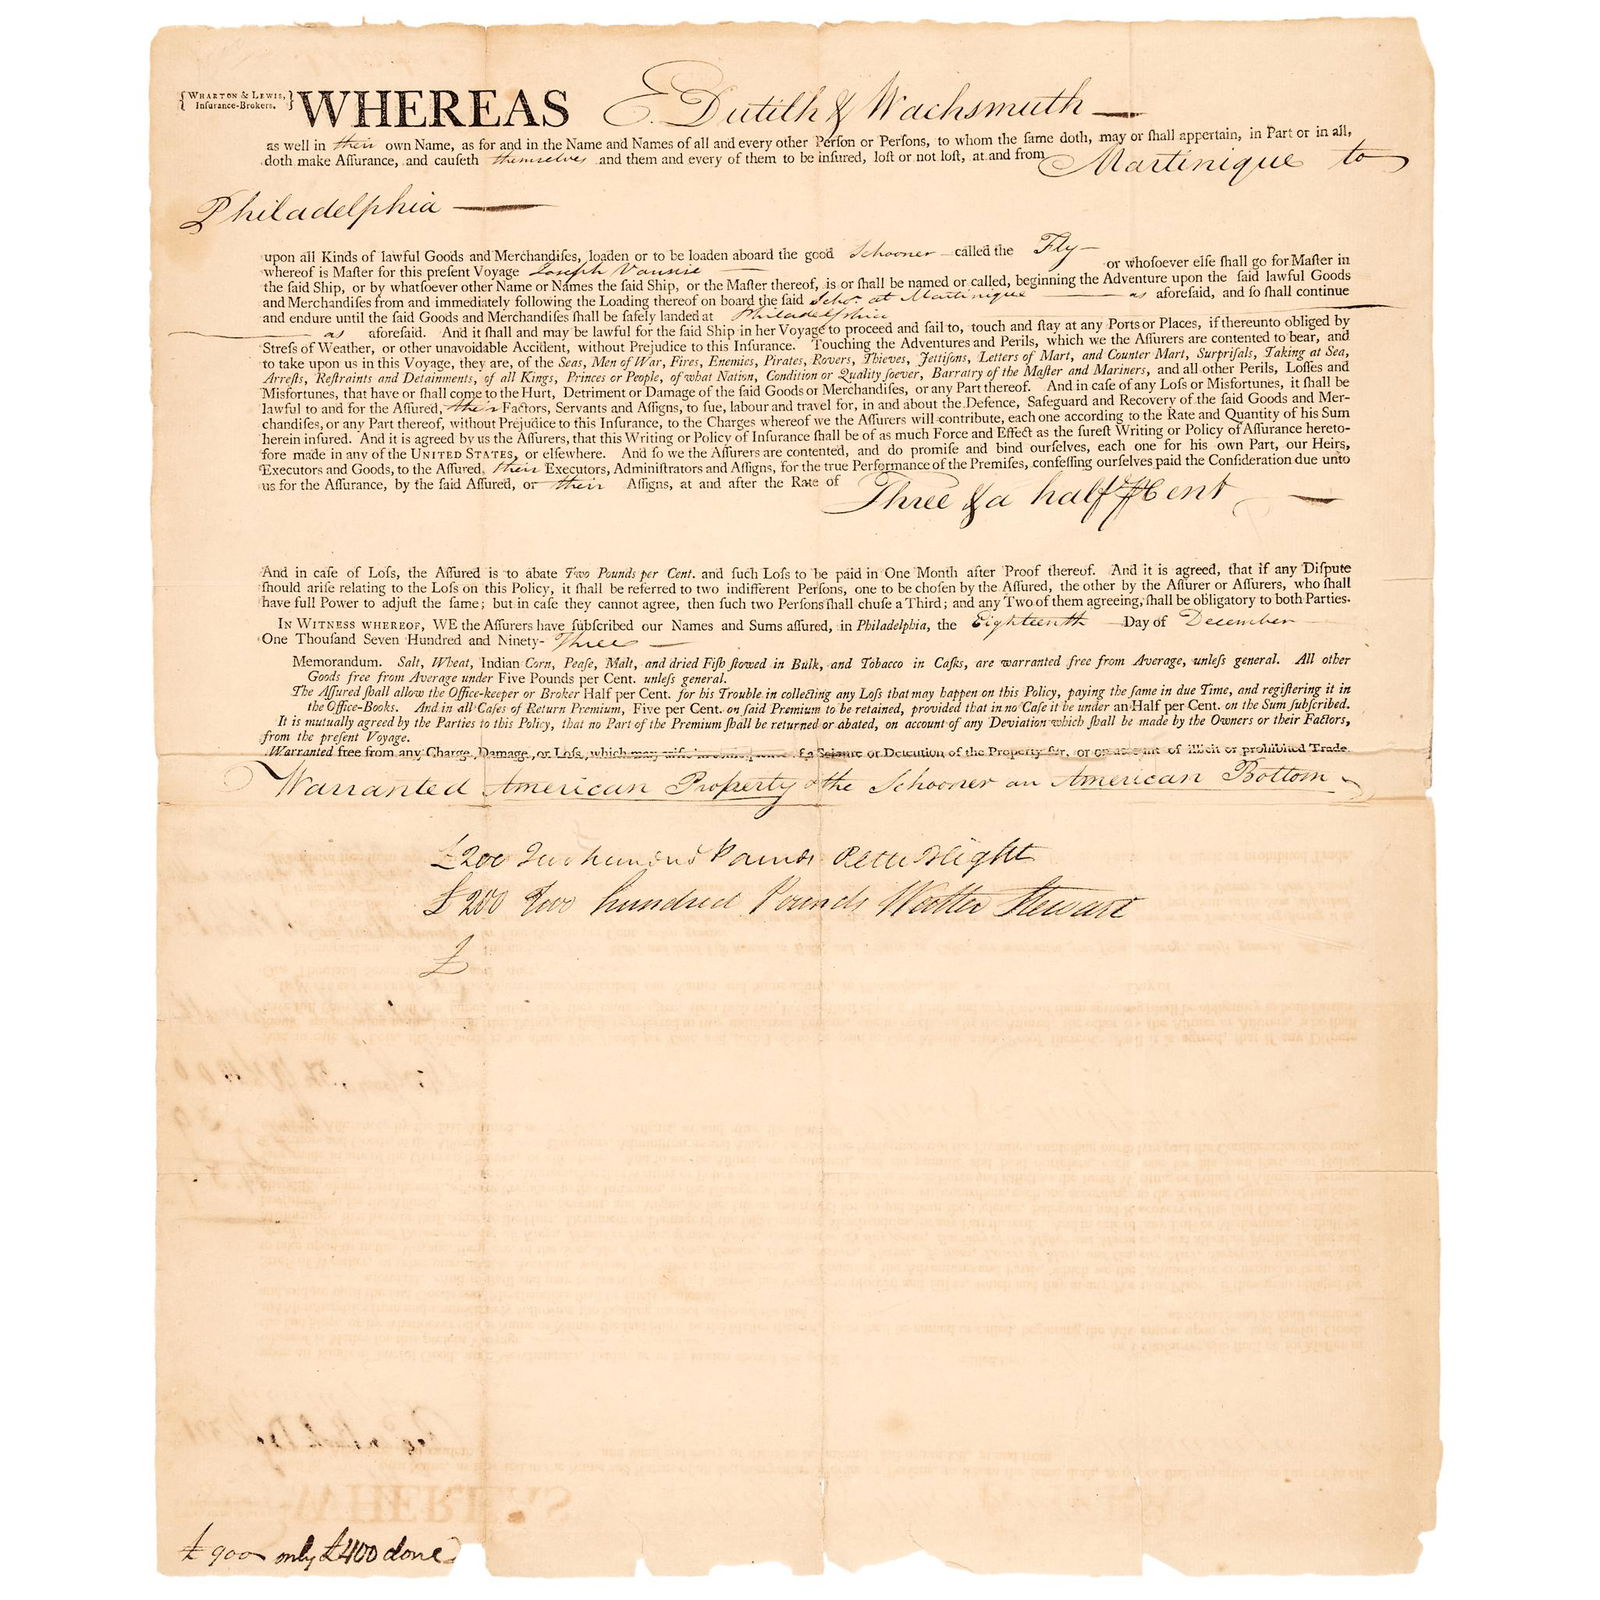 { WHARTON & LEWIS, Inſurance-Brokers. } WHEREAS E. Dutilh & Wachsmuth
as well in their own Name, as for and in the Name and Names of all and every other Perſon or Perſons, to whom the ſame doth, may or ſhall appertain, in Part or in all,
doth make Aſſurance, and cauſeth themselves and them and every of them to be inſured, loſt or not loſt, at and from Martinique to
Philadelphia
upon all Kinds of lawful Goods and Merchandiſes, loaden or to be loaden aboard the good Schooner called the Fly or whoſoever elſe ſhall go for Maſter in
whereof is Maſter for this preſent Voyage Joseph
the ſaid Ship, or by whatſoever other Name or Names the ſaid Ship, or the Maſter thereof, is or ſhall be named or called, beginning the Adventure upon the ſaid lawful Goods
and Merchandiſes from and immediately following the Loading thereof on board the ſaid Schr. at Martinique as aforeſaid, and ſo ſhall continue
and endure until the ſaid Goods and Merchandiſes ſhall be ſafely landed at Philadelphia
as aforeſaid. And it ſhall and may be lawful for the ſaid Ship in her Voyage to proceed and ſail to, touch and ſtay at any Ports or Places, if thereunto obliged by
Streſs of Weather, or other unavoidable Accident, without Prejudice to this Inſurance. Touching the Adventures and Perils, which we the Aſſurers are contented to bear, and
to take upon us in this Voyage, they are, of the Seas, Men of War, Fires, Enemies, Pirates, Rovers, Thieves, Jettiſons, Letters of Mart, and Counter Mart, Surpriſals, Taking at Sea,
Arreſts, Reſtraints and Detainments, of all Kings, Princes or People, of what Nation, Condition or Quality ſoever, Barratry of the Maſter and Mariners, and all other Perils, Loſſes and
Misfortunes, that have or ſhall come to the Hurt, Detriment or Damage of the ſaid Goods or Merchandiſes, or any Part thereof. And in caſe of any Loſs or Misfortunes, it ſhall be
lawful to and for the Aſſured, their Factors, Servants and Aſſigns, to ſue, labour and travel for, in and about the Defence, Safeguard and Recovery of the ſaid Goods and Mer-
chandiſes, or any Part thereof, without Prejudice to this Inſurance, to the Charges whereof we the Aſſurers will contribute, each one according to the Rate and Quantity of his Sum
herein inſured. And it is agreed by us the Aſſurers, that this Writing or Policy of Inſurance ſhall be of as much Force and Effect as the ſureſt Writing or Policy of Aſſurance hereto-
fore made in any of the UNITED STATES, or elſewhere. And ſo we the Aſſurers are contented, and do promiſe and bind ourſelves, each one for his own Part, our Heirs,
Executors and Goods, to the Aſſured, their Executors, Adminiſtrators and Aſſigns, for the true Performance of the Premiſes, confeſſing ourſelves paid the Conſideration due unto
us for the Aſſurance, by the ſaid Aſſured, or their Aſſigns, at and after the Rate of Three & a half ℔ Cent
And in caſe of Loſs, the Aſſured is to abate Two Pounds per Cent. and ſuch Loſs to be paid in One Month after Proof thereof. And it is agreed, that if any Diſpute
ſhould ariſe relating to the Loſs on this Policy, it ſhall be referred to two indifferent Perſons, one to be choſen by the Aſſured, the other by the Aſſurer or Aſſurers, who ſhall
have full Power to adjuſt the ſame; but in caſe they cannot agree, then ſuch two Perſons ſhall chuſe a Third; and any Two of them agreeing, ſhall be obligatory to both Parties.
IN WITNESS WHEREOF, WE the Aſſurers have ſubſcribed our Names and Sums aſſured, in Philadelphia, the Eighteenth Day of December
One Thouſand Seven Hundred and Ninety- Three
Memorandum. Salt, Wheat, Indian Corn, Peaſe, Malt, and dried Fiſh ſtowed in Bulk, and Tobacco in Caſks, are warranted free from Average, unleſs general. All other
Goods free from Average under Five Pounds per Cent. unleſs general.
The Aſſured ſhall allow the Office-keeper or Broker Half per Cent. for his Trouble in collecting any Loſs that may happen on this Policy, paying the ſame in due Time, and regiſtering it in
the Office-Books. And in all Caſes of Return Premium, Five per Cent. on ſaid Premium to be retained, provided that in no Caſe it be under an Half per Cent. on the Sum ſubſcribed.
It is mutually agreed by the Parties to this Policy, that no Part of the Premium ſhall be returned or abated, on account of any Deviation which ſhall be made by the Owners or their Factors,
from the preſent Voyage.
Warranted free from any Charge, Damage, or Loſs, which may ariſe in conſequence of a Seizure or Detention of the Property for, or on account of illicit or prohibited Trade.
Warranted American Property & the Schooner an American Bottom
£200 Two hundred Pounds Peter Blight
£200 Two hundred Pounds Walter Stewart
£
WHEREAS
£900 only £400 done